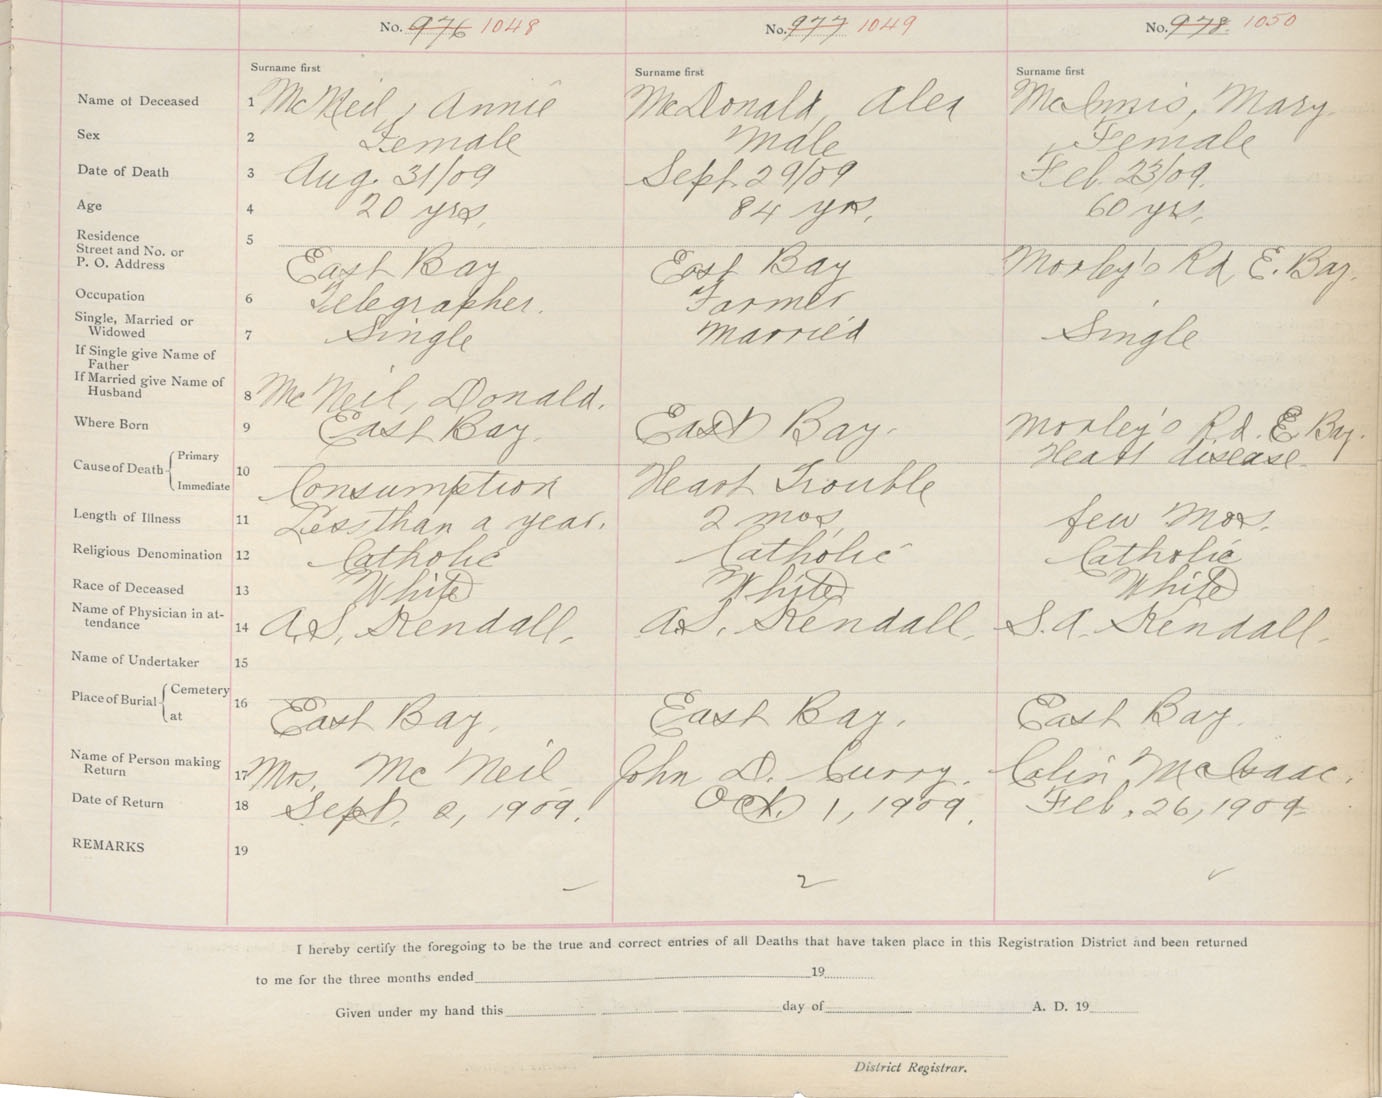 No. 976 1048 No. 977 1049 No. 978 1050
Surname first Surname first Surname first
Name of Deceased 1 McNeil, Annie McDonald, Alex McInnis, Mary
Sex 2 Female Male Female
Date of Death 3 Aug. 31/09 Sept 29/09 Feb. 23/09.
Age 4 20 yrs. 84 yrs. 60 yrs.
Residence
Street and No. or 5
P. O. Address East Bay East Bay Morley's Rd, E. Bay.
Occupation 6 Telegrapher. Farmer
Single, Married or
Widowed 7 Single Married Single
If Single give Name of
Father
If Married give Name of
Husband 8 McNeil, Donald.
Where Born 9 East Bay. East Bay. Morley's Rd. E Bay.
Cause of Death Primary 10 Heart disease.
Immediate Consumption Heart Trouble
Length of Illness 11 Less than a year. 2 mos. few Mos.
Religious Denomination 12 Catholic Catholic Catholic
Race of Deceased 13 White White White
Name of Physician in at-
tendance 14 A.S. Kendall. A.S. Kendall. S.A. Kendall.
Name of Undertaker 15
Place of Burial Cemetery 16
at East Bay. East Bay. East Bay.
Name of Person making
Return 17 Mrs. McNeil John D. Curry. Colin McIsaac.
Date of Return 18 Sept. 2, 1909. Oct. 1, 1909. Feb. 26, 1909
REMARKS 19
I hereby certify the foregoing to be the true and correct entries of all Deaths that have taken place in this Registration District and been returned
to me for the three months ended 19
Given under my hand this day of A. D. 19
District Registrar.